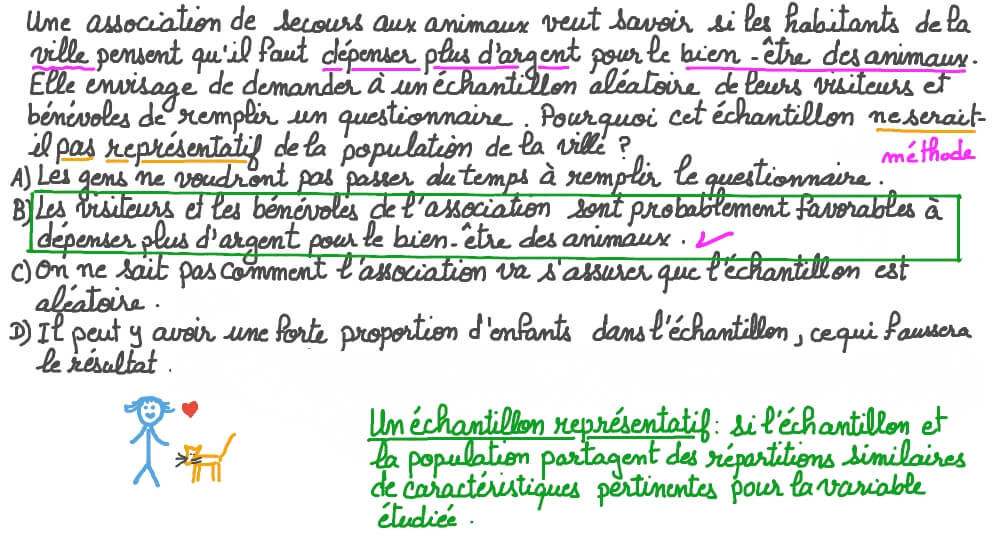 Une association de secours aux animaux veut savoir si les habitants de la
ville pensent qu'il faut dépenser plus d'argent pour le bien-être des animaux.
Elle envisage de demander à un échantillon aléatoire de leurs visiteurs et
bénévoles de remplir un questionnaire. Pourquoi cet échantillon ne serait-
il pas représentatif de la population de la ville ?
méthode
A) Les gens ne voudront pas passer du temps à remplir le questionnaire.
B) Les visiteurs et les bénévoles de l'association sont probablement favorables à
dépenser plus d'argent pour le bien-être des animaux.
C) On ne sait pas comment l'association va s'assurer que l'échantillon est
aléatoire.
D) Il peut y avoir une forte proportion d'enfants dans l'échantillon, ce qui faussera
le résultat.
Un échantillon représentatif : si l'échantillon et
la population partagent des répartitions similaires
de caractéristiques pertinentes pour la variable
étudiée.